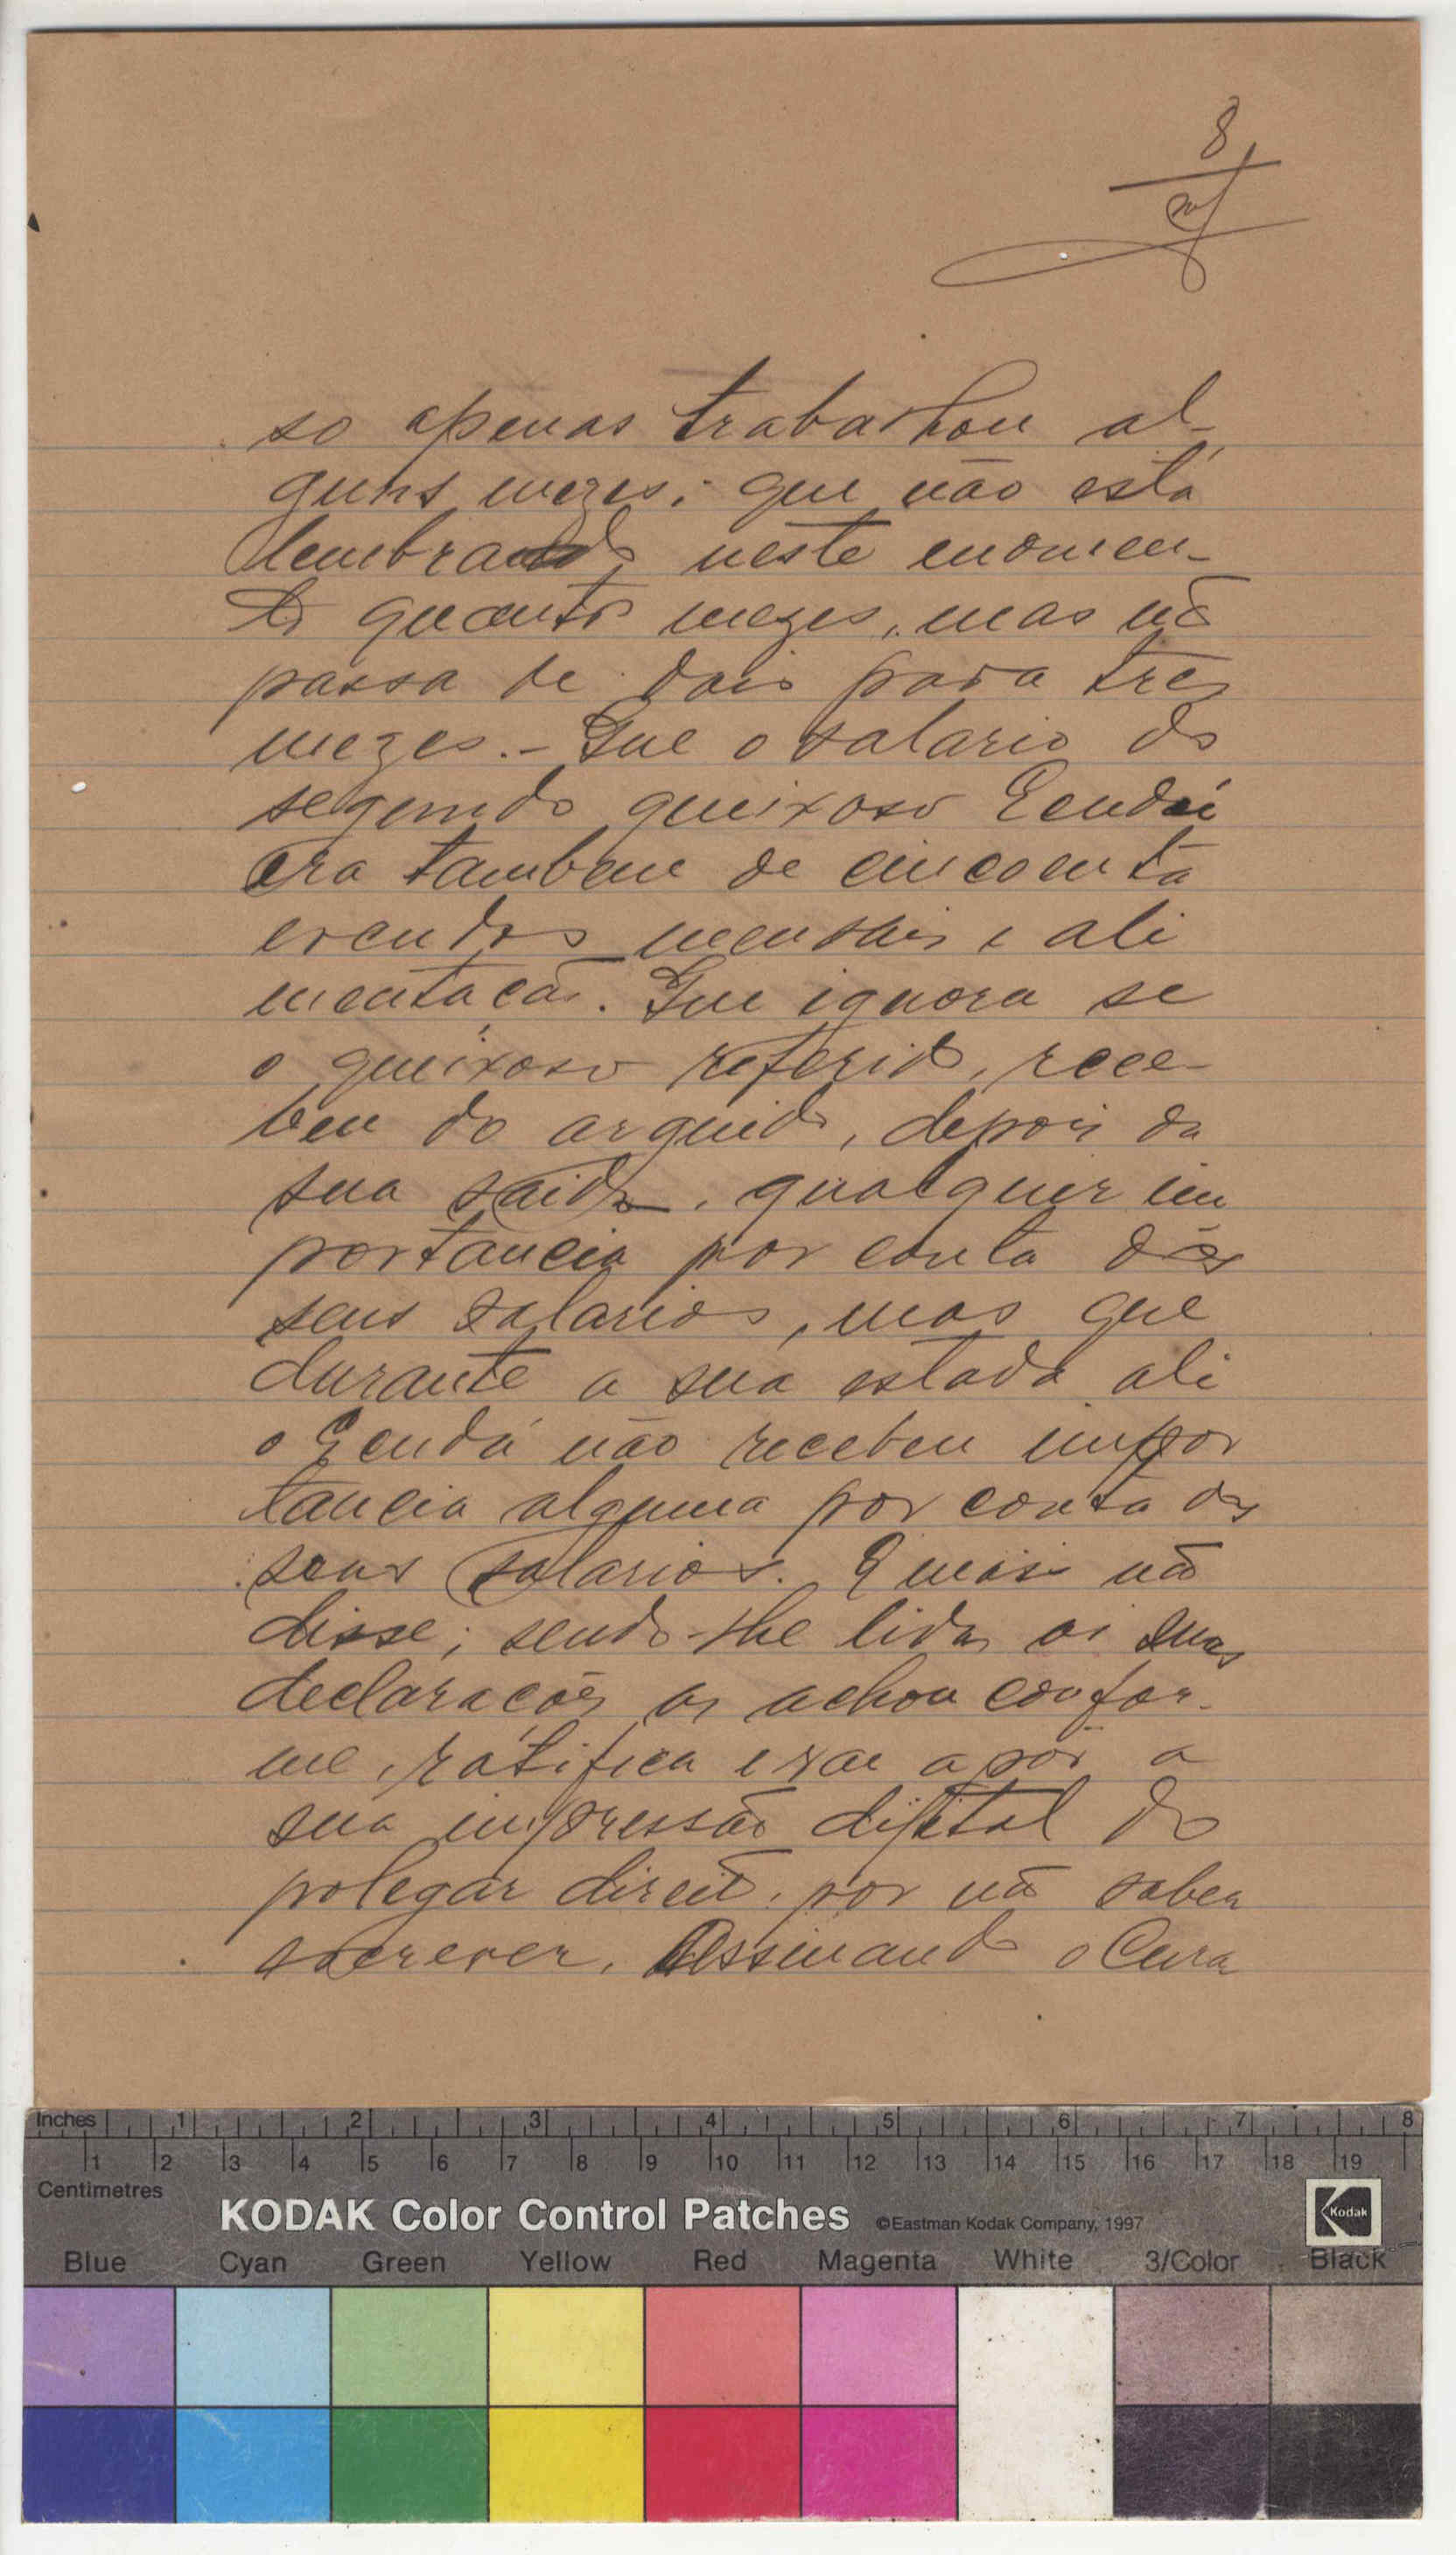 8
so apenas trabalhou al-
guns mezes; que não está
lembrado neste momen-
to quantos mezes, mas não
passa de dois para tres
mezes.- Que o salario do
segundo queixoso
era tambem de cincoenta
escudos mensais e ali
mentação. Que ignora se
o queixoso referido, rece-
beu do arguido, depois da
sua saida, qualquer im
portancia por conta dos
seus salarios, mas que
durante a sua estada ali
o não recebeu impor
tancia alguma por conta dos
seus salarios. E mais não
disse; sendo-lhe lidas as suas
declarações as achou confor-
me, ratifica e vae apôr a
sua impressão digital do
polegar direito, por não saber
escrever, Assinando o Cura
Inches 1 2 3 4 5 6 7 8
1 2 3 4 5 6 7 8 9 10 11 12 13 14 15 16 17 18 19
Centimetres
KODAK Color Control Patches ©Eastman Kodak Company, 1997 Kodak
Blue Cyan Green Yellow Red Magenta White 3/Color Black